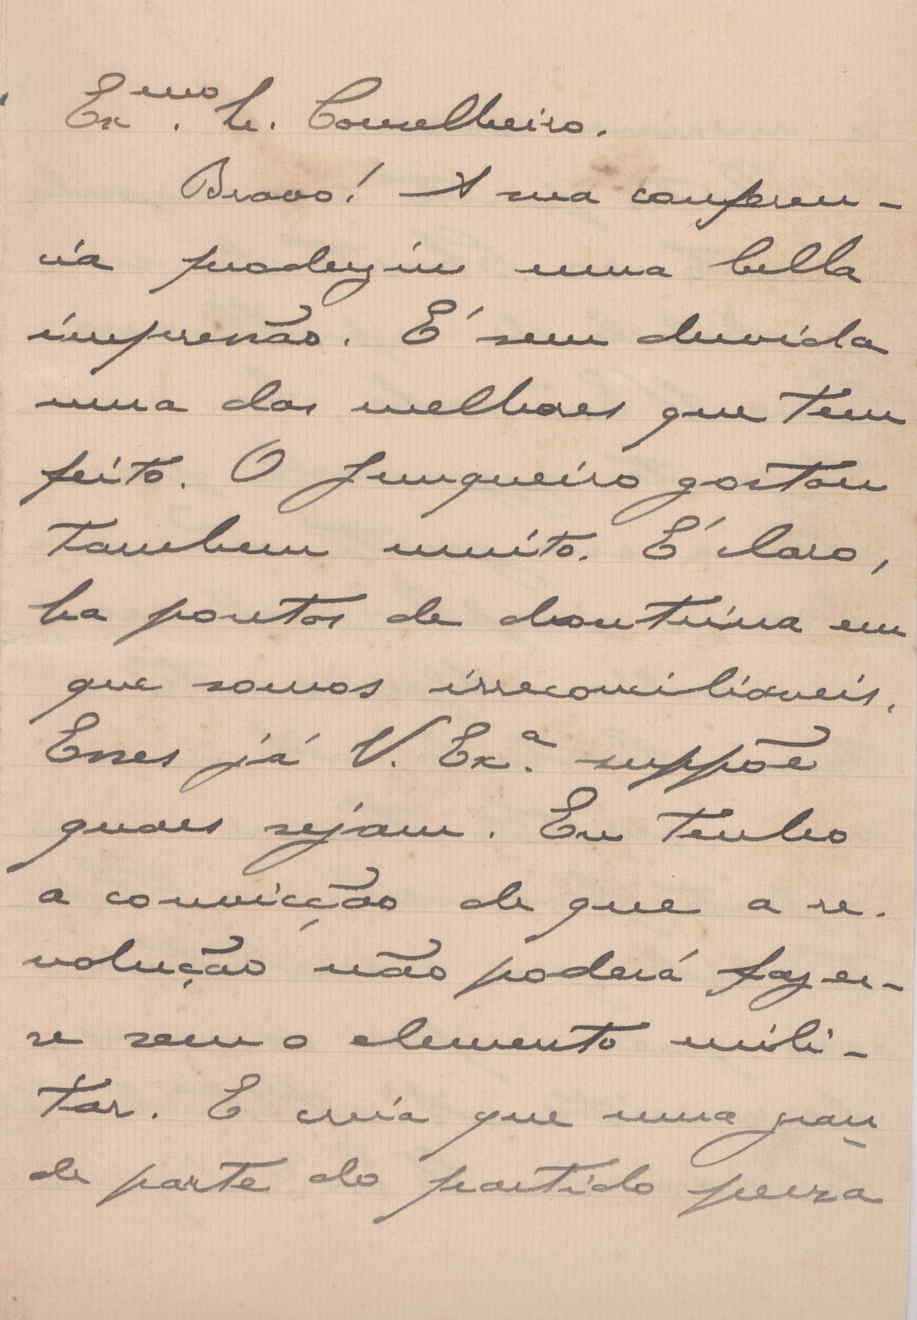 Ex.mo Sr. Conselheiro.
Bravo! A sua conferen-
cia produziu uma bella
impressão. É sem duvida
uma das melhores que tem
feito. O Junqueiro gostou
tambem muito. É claro,
ha pontos de doutrina em
que somos irreconciliaveis.
Esses já V. Ex.a suppõe
quaes sejam. Eu tenho
a convicção de que a re-
volução não poderá fazer-
se sem o elemento mili-
tar. E creia que uma gran
de parte do partido pensa